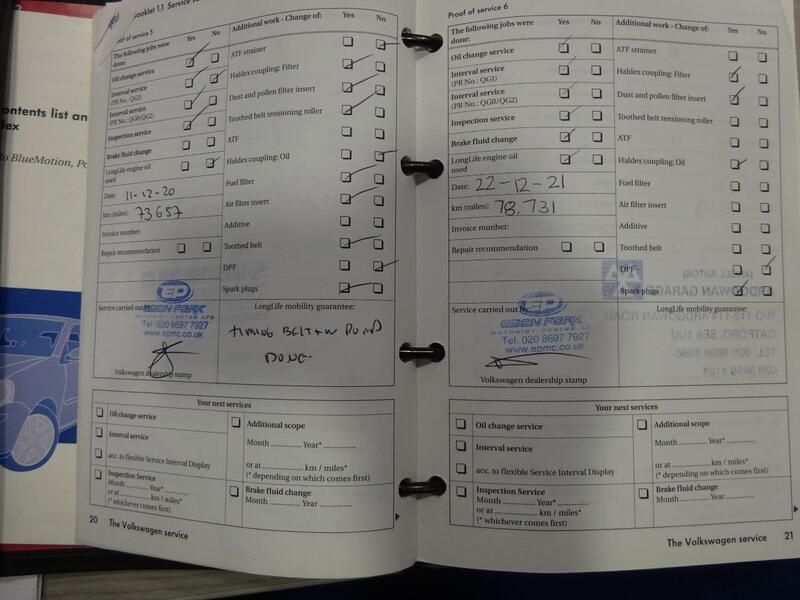 Booklet 1.1 Service
Proof of service 5
The following jobs were done:
Yes
No
Oil change service
Interval service
(PR No.: QG2)
Interval service
(PR No.: QG0/QG2)
Inspection service
Brake fluid change
LongLife engine oil used
Date: 11-12-20
km (miles): 73657
Invoice number:
Repair recommendation
Additional work - Change of:
Yes
No
ATF strainer
Haldex coupling: Filter
Dust and pollen filter insert
Toothed belt tensioning roller
ATF
Haldex coupling: Oil
Fuel filter
Air filter insert
Additive
Toothed belt
DPF
Spark plugs
Service carried out by:
EP
EDEN PARK
MOTORIST CENTRE LTD
Tel: 020 8697 7927
www.epmc.co.uk
Volkswagen dealership stamp
LongLife mobility guarantee:
TIMING BELT + W PUMP
DONE
Your next services
Oil change service
Interval service
acc. to flexible Service Interval Display
Inspection Service
Month ............ Year* ............
or at ............ km / miles*
(* whichever comes first)
Additional scope
Month ............ Year* ............
or at ............ km / miles*
(* depending on which comes first)
Brake fluid change
Month ............ Year ............
20 The Volkswagen service
Proof of service 6
The following jobs were done:
Yes
No
Oil change service
Interval service
(PR No.: QG1)
Interval service
(PR No.: QG0/QG2)
Inspection service
Brake fluid change
LongLife engine oil used
Date: 22-12-21
km (miles): 78,731
Invoice number:
Repair recommendation
Additional work - Change of:
Yes
No
ATF strainer
Haldex coupling: Filter
Dust and pollen filter insert
Toothed belt tensioning roller
ATF
Haldex coupling: Oil
Fuel filter
Air filter insert
Additive
Toothed belt
DPF
Spark plugs
Service carried out by:
EP
EDEN PARK
MOTORIST CENTRE LTD
Tel: 020 8697 7927
www.epmc.co.uk
Volkswagen dealership stamp
LongLife mobility guarantee:
Your next services
Oil change service
Interval service
acc. to flexible Service Interval Display
Inspection Service
Month ............ Year* ............
or at ............ km / miles*
(* whichever comes first)
Additional scope
Month ............ Year* ............
or at ............ km / miles*
(* depending on which comes first)
Brake fluid change
Month ............ Year ............
The Volkswagen service 21
ontents list an
dex
lo BlueMotion, Po